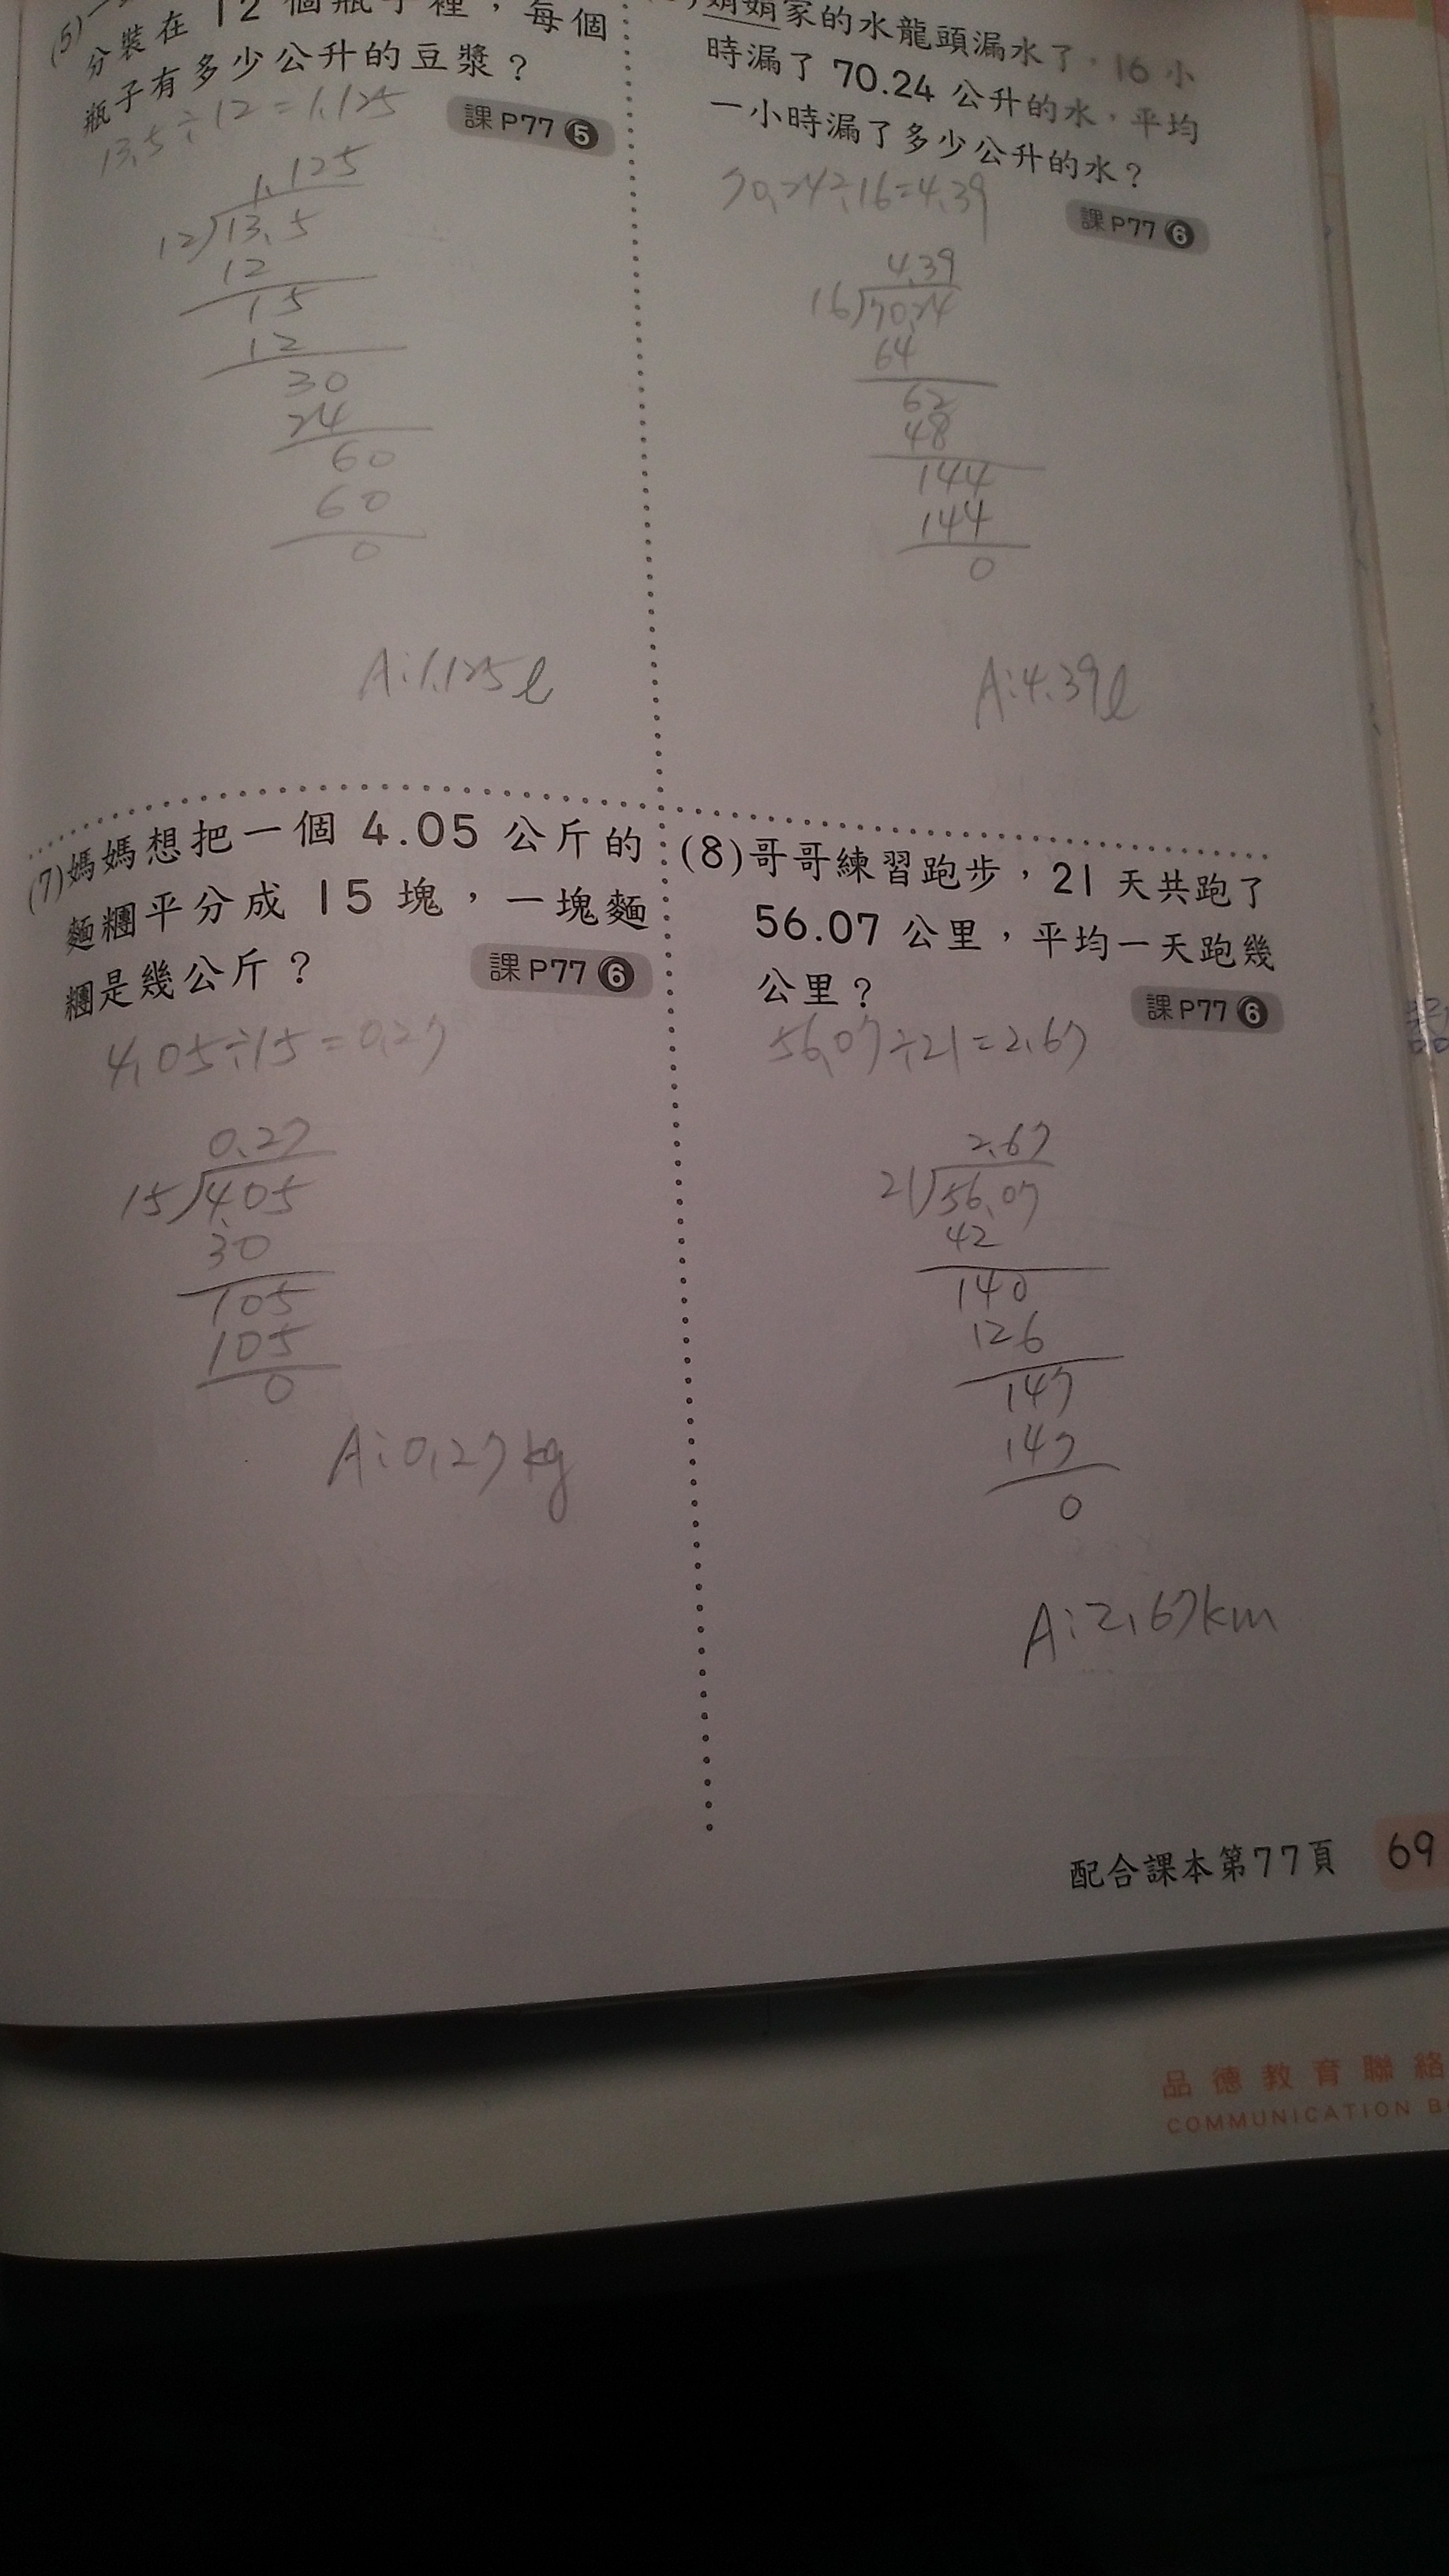 (5)
分裝在 12 個瓶子裡，每個
瓶子有多少公升的豆漿？
課P77 5
13.5÷12=1.125
1.125
12 13.5
12
15
12
30
24
60
60
0
A:1.125ℓ
娟娟家的水龍頭漏水了，16 小
時漏了 70.24 公升的水，平均
一小時漏了多少公升的水？
70.24÷16=4.39
課P77 6
4.39
16 70.24
64
62
48
144
144
0
A:4.39ℓ
(7)媽媽想把一個 4.05 公斤的
麵糰平分成 15 塊，一塊麵
糰是幾公斤？
課P77 6
4.05÷15=0.27
0.27
15 4.05
30
105
105
0
A:0.27kg
(8)哥哥練習跑步，21 天共跑了
56.07 公里，平均一天跑幾
公里？
課P77 6
56.07÷21=2.67
2.67
21 56.07
42
140
126
147
147
0
A:2.67km
配合課本第77頁 69
品德教育聯絡
COMMUNICATION B